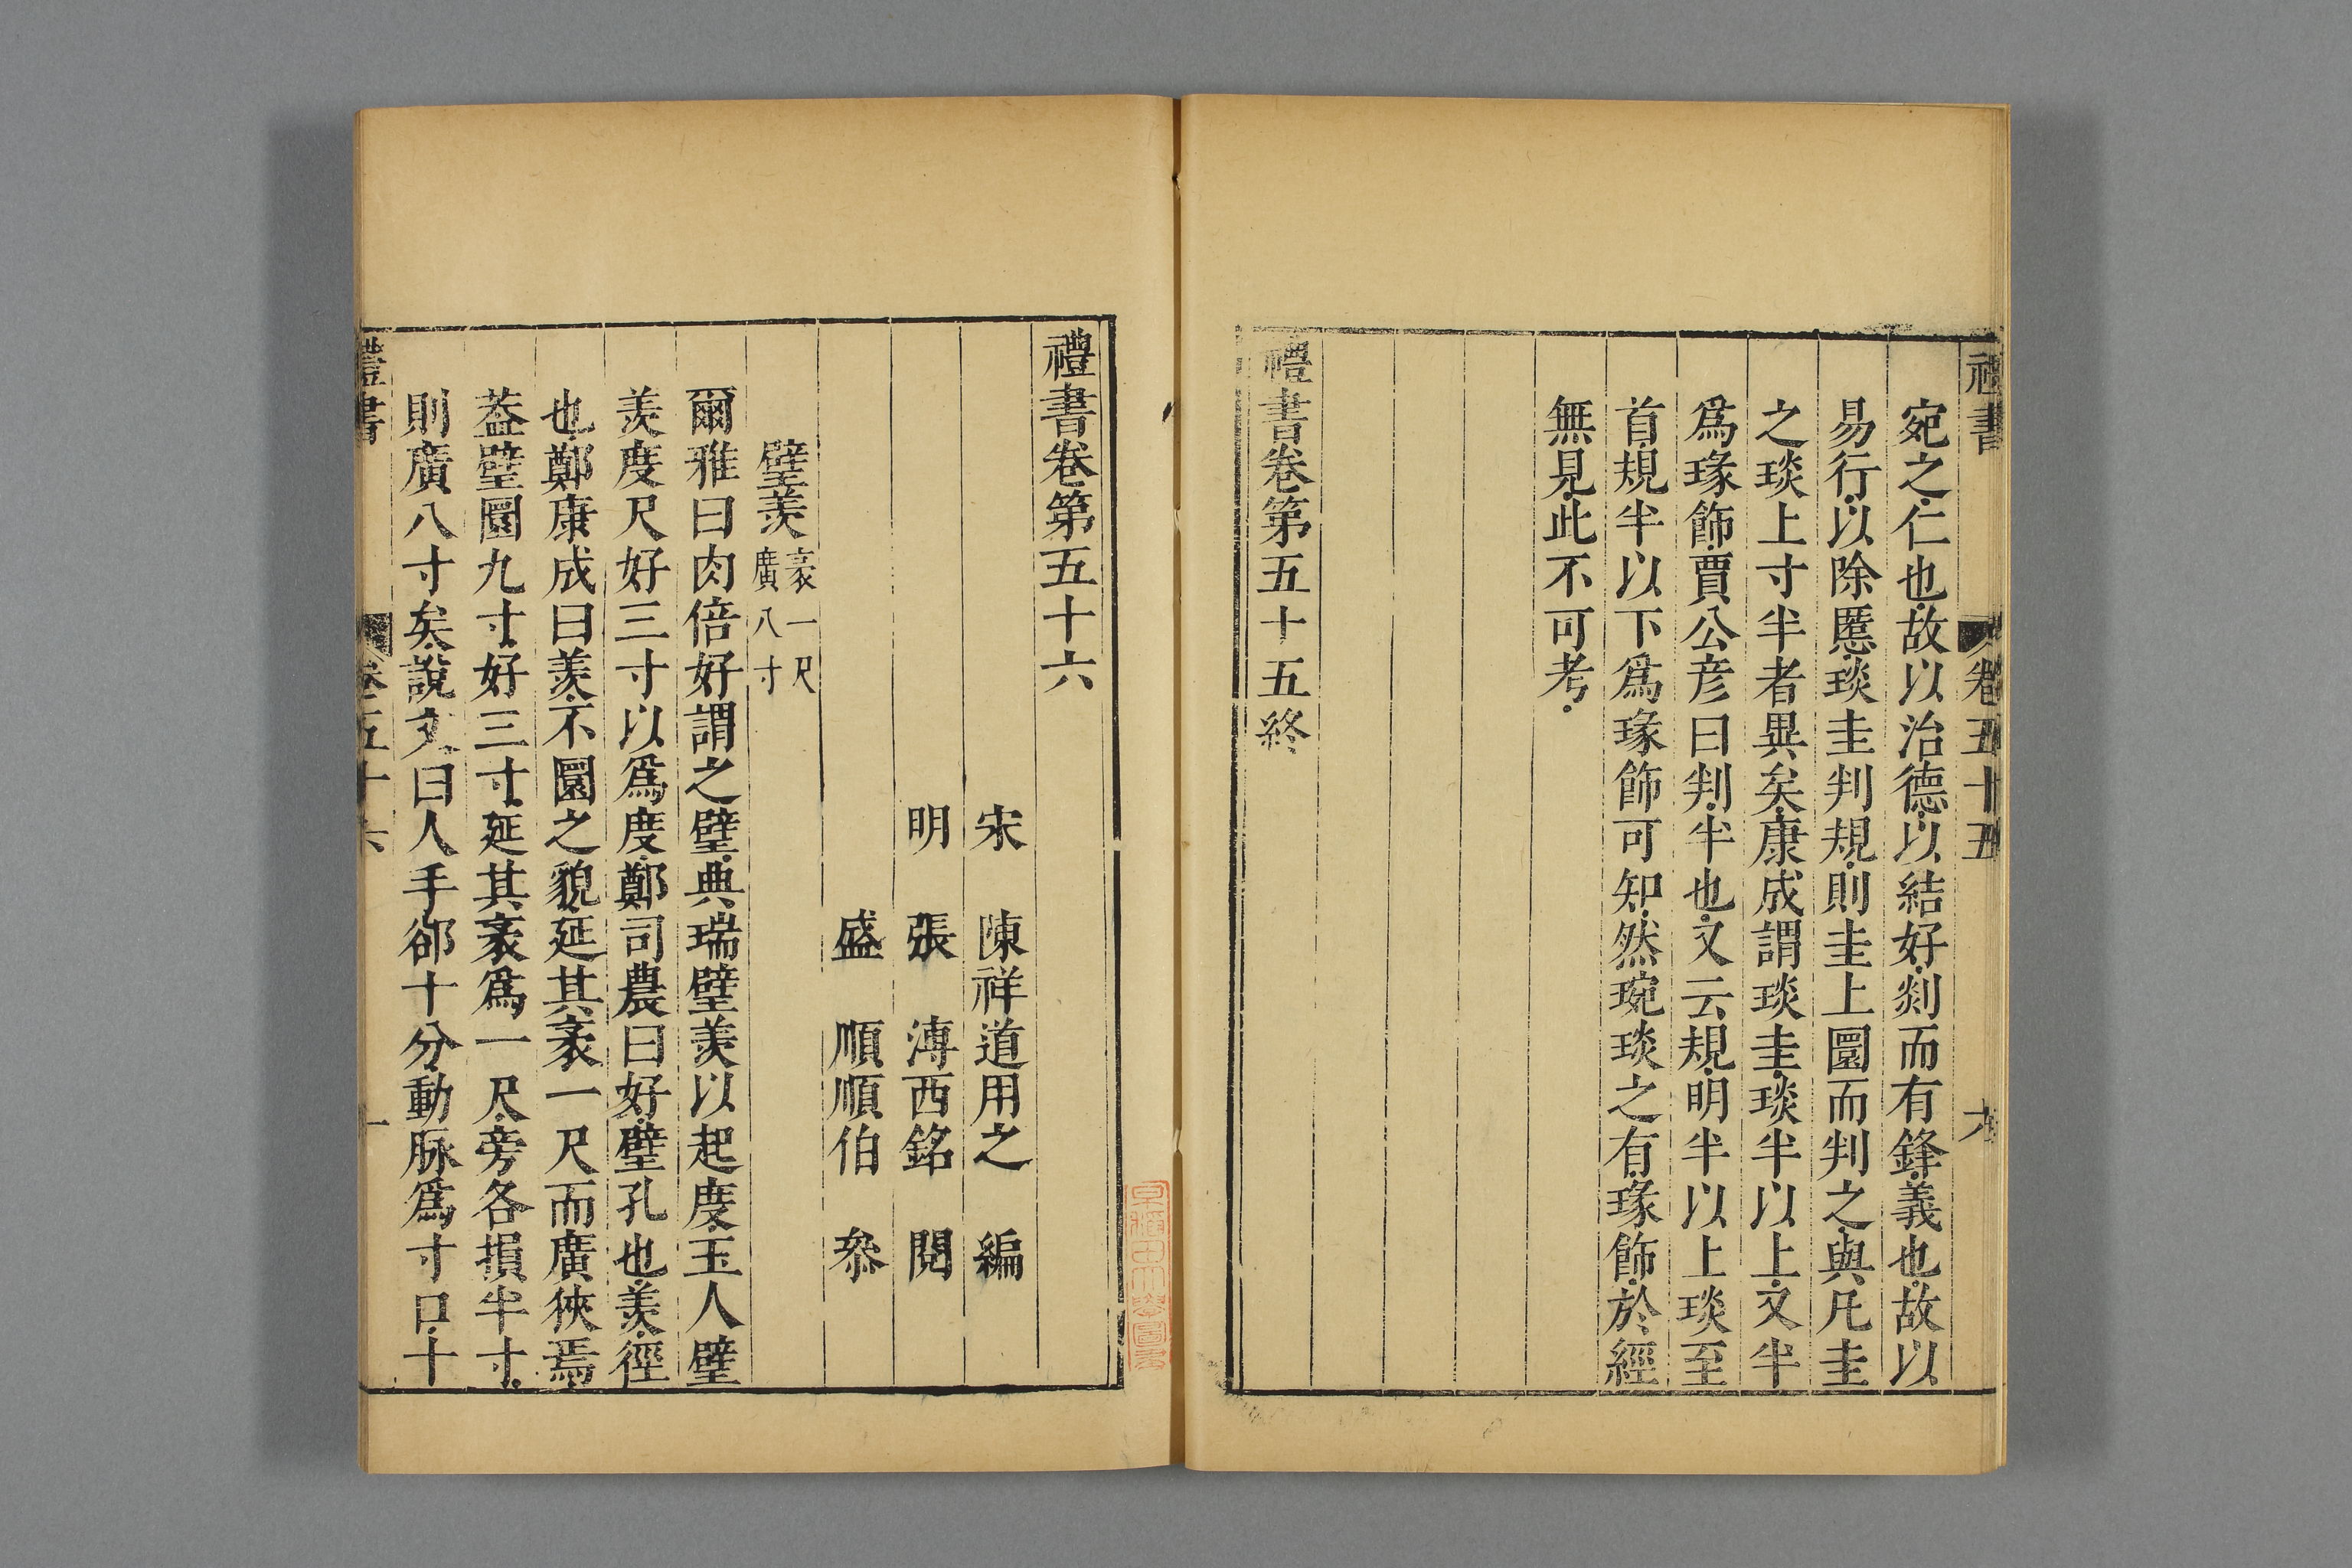 禮書
卷五十五
九
宛之仁也故以治德以結好剡而有鋒義也故以
易行以除慝琰圭判規則圭上圜而判之與凡圭
之琰上寸半者異矣康成謂琰圭琰半以上又半
爲瑑飾賈公彦曰判半也又云規明半以上琰至
首規半以下爲瑑飾可知然琬琰之有瑑飾於經
無見此不可考
禮書卷第五十五終
禮書卷第五十六
宋 陳祥道用之 編
明 張溥西銘 閱
盛順順伯 叅
璧羨 袤一尺
廣八寸
爾雅曰肉倍好謂之璧典瑞璧羨以起度玉人璧
羨度尺好三寸以爲度鄭司農曰好璧孔也羨徑
也鄭康成曰羨不圜之貌延其袤一尺而廣狹焉
葢璧圜九寸好三寸延其袤爲一尺旁各損半寸
則廣八寸矣說文曰人手郤十分動脉爲寸口十
禮書
卷五十六
一